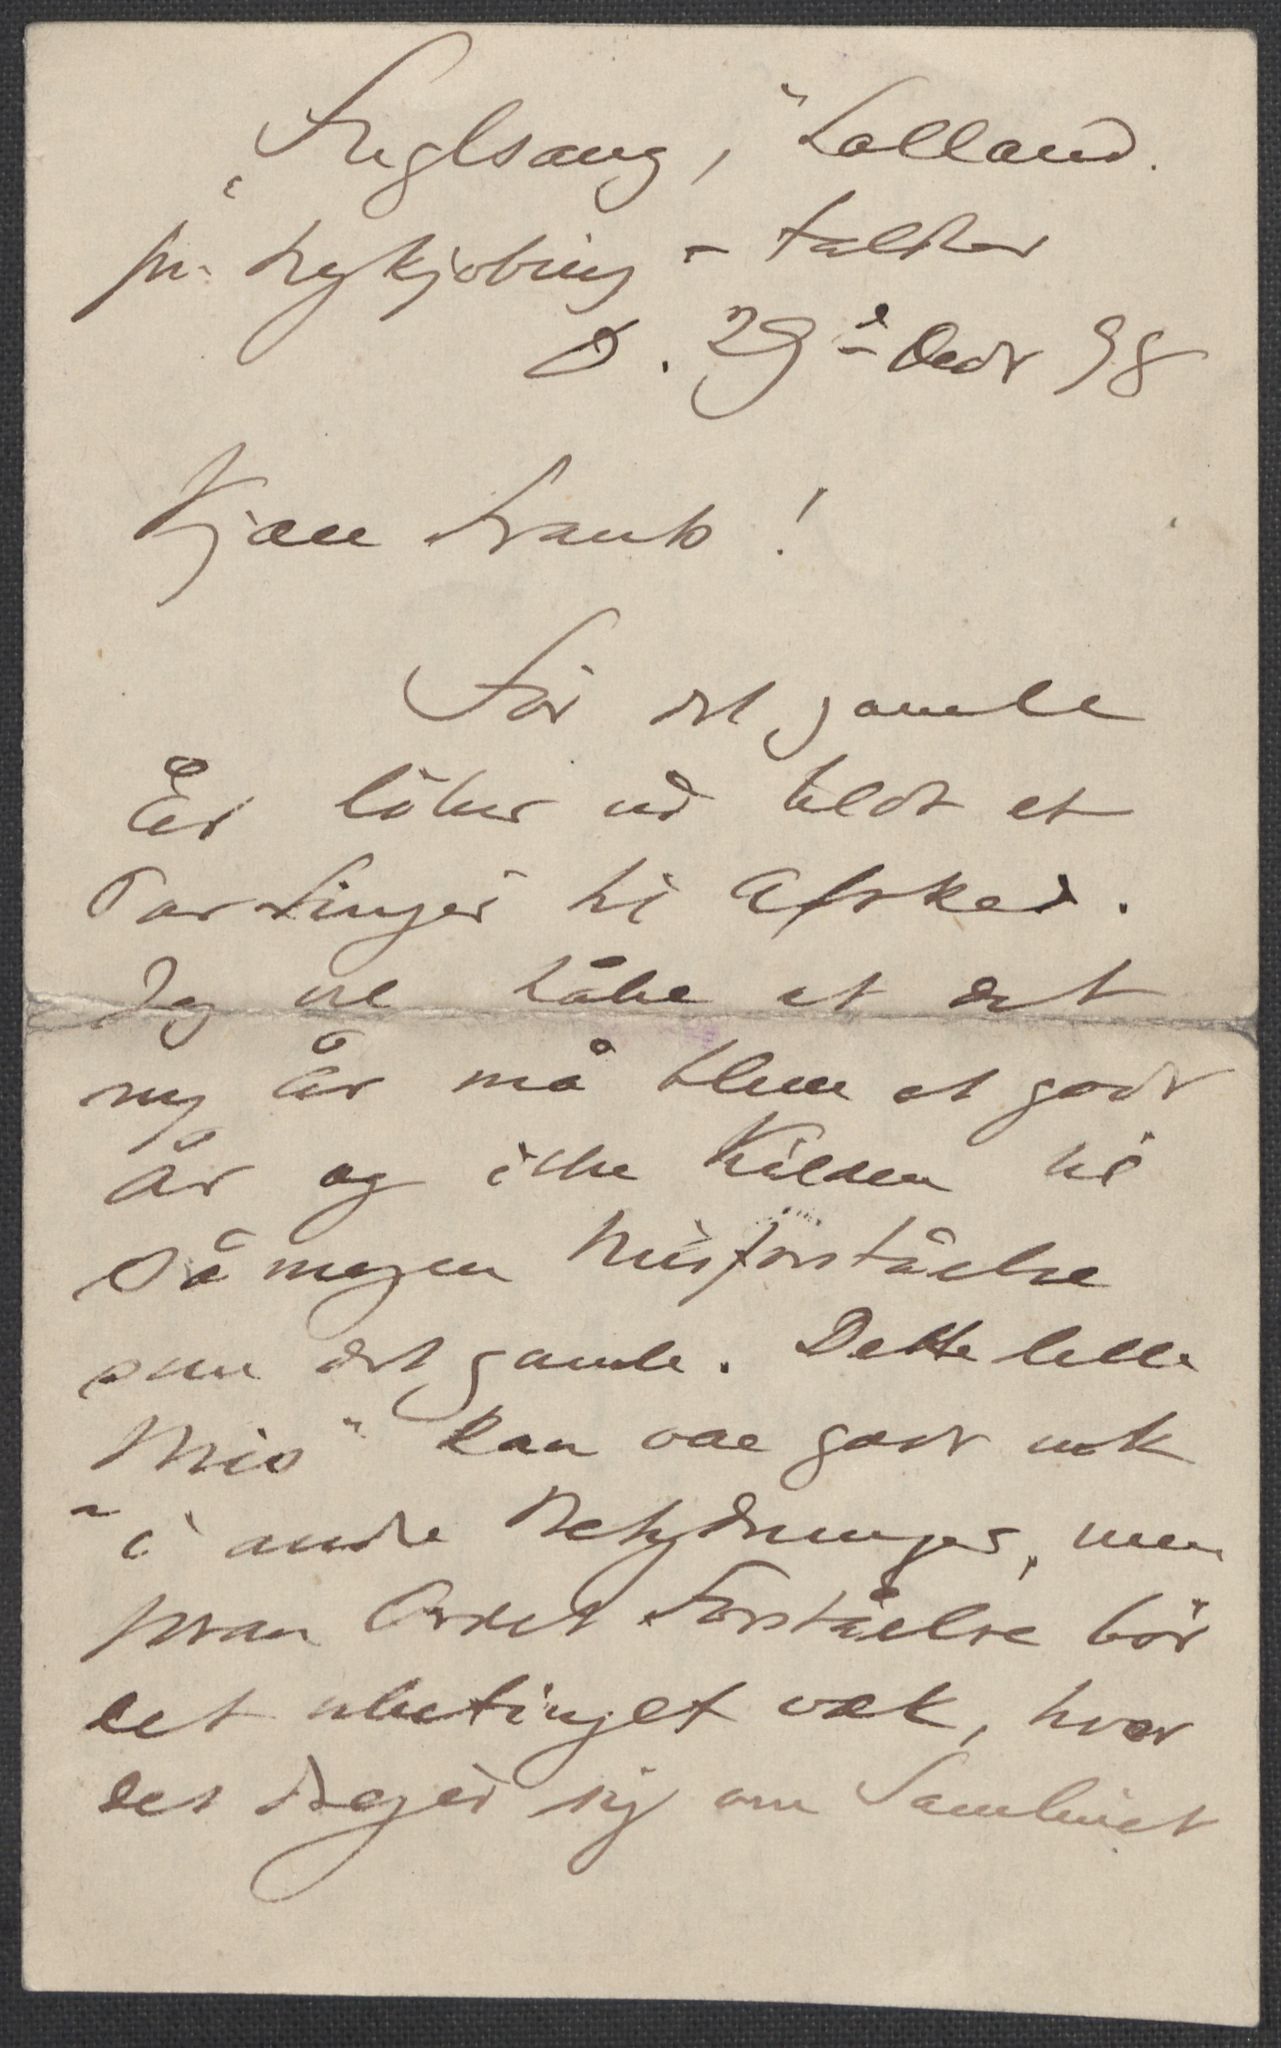 „Fuglsang, " Lolland.
pr. Nykjøbing - Falster
D. 29de Decbr 98
Kjære Frants!
För det gamle
År löber ud blot et
Par Linjer til Afsked.
Jeg vil håbe at det
ny År må blive et godt
År og ikke Kilden til
så megen Misforståelse
som det gamle. Dette lille
„Mis" kan være godt nok
i andre Betydninger, men
foran Ordet Forståelse bör
det ubetinget væk, hvor
det drejer sig om Samlivet